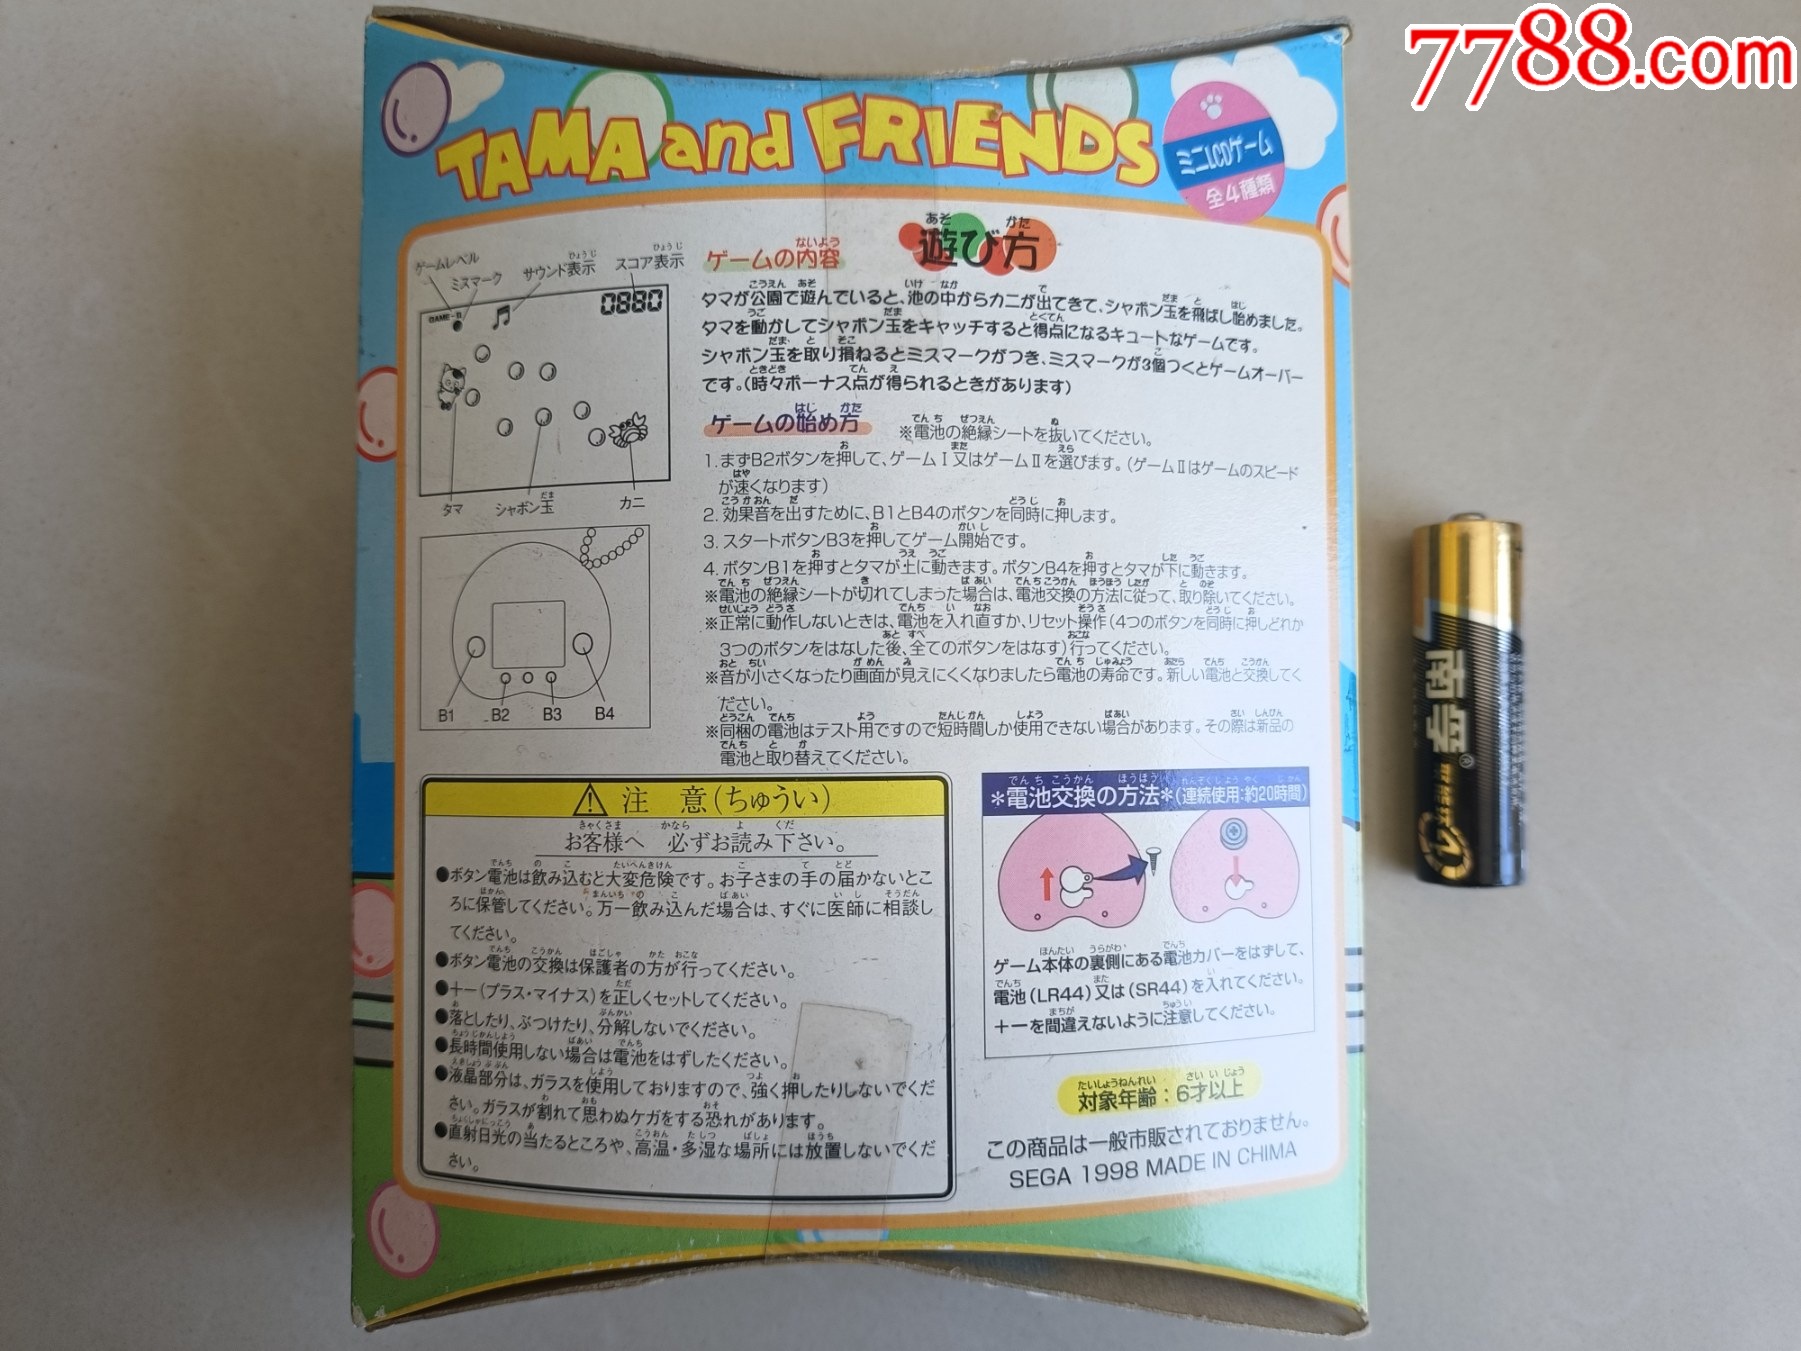 7788.com
TAMA and FRIENDS
ミニLCDゲーム
全4種類
遊び方
ゲームレベル
ミスマーク
サウンド表示
スコア表示
GAME-II
0880
タマ
シャボン玉
カニ
B1 B2 B3 B4
ゲームの内容
タマが公園で遊んでいると、池の中からカニが出てきて、シャボン玉を飛ばし始めました。
タマを動かしてシャボン玉をキャッチすると得点になるキュートなゲームです。
シャボン玉を取り損ねるとミスマークがつき、ミスマークが3個つくとゲームオーバー
です。(時々ボーナス点が得られるときがあります)
ゲームの始め方 ※電池の絶縁シートを抜いてください。
1. まずB2ボタンを押して、ゲームⅠ又はゲームⅡを選びます。(ゲームⅡはゲームのスピード
が速くなります)
2. 効果音を出すために、B1とB4のボタンを同時に押します。
3. スタートボタンB3を押してゲーム開始です。
4. ボタンB1を押すとタマが上に動きます。ボタンB4を押すとタマが下に動きます。
※電池の絶縁シートが切れてしまった場合は、電池交換の方法に従って、取り除いてください。
※正常に動作しないときは、電池を入れ直すか、リセット操作(4つのボタンを同時に押しどれか
3つのボタンをはなした後、全てのボタンをはなす)行ってください。
※音が小さくなったり画面が見えにくくなりましたら電池の寿命です。新しい電池と交換してく
ださい。
※同梱の電池はテスト用ですので短時間しか使用できない場合があります。その際は新品の
電池と取り替えてください。
注 意(ちゅうい)
お客様へ 必ずお読み下さい。
●ボタン電池は飲み込むと大変危険です。お子さまの手の届かないとこ
ろに保管してください。万一飲み込んだ場合は、すぐに医師に相談し
てください。
●ボタン電池の交換は保護者の方が行ってください。
●+−(プラス・マイナス)を正しくセットしてください。
●落としたり、ぶつけたり、分解しないでください。
●長時間使用しない場合は電池をはずしたください。
●液晶部分は、ガラスを使用しておりますので、強く押したりしないでくだ
さい。ガラスが割れて思わぬケガをする恐れがあります。
●直射日光の当たるところや、高温・多湿な場所には放置しないでくだ
さい。
*電池交換の方法*(連続使用:約20時間)
ゲーム本体の裏側にある電池カバーをはずして、
電池(LR44)又は(SR44)を入れてください。
+−を間違えないように注意してください。
対象年齢:6才以上
この商品は一般市販されておりません。
SEGA 1998 MADE IN CHIMA
南孚